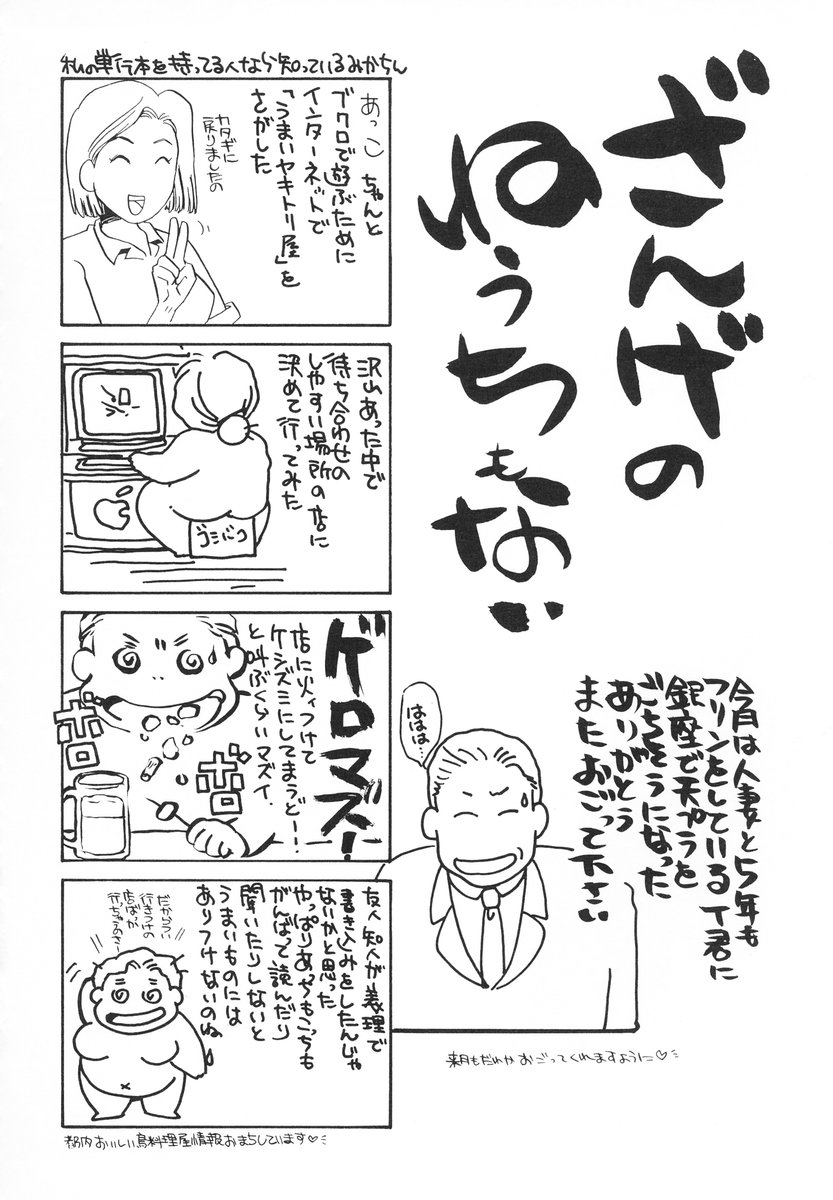 ざんげの
ねうちも
ない
今月は人妻と5年も
フリンをしているT君に
銀座で天プラを
ごちそうになった
ありがとう
またおごって下さい
ははは…
来月もだれかおごってくれますように♡
私の単行本を持ってる人なら知っているみかちん
あっこちゃんと
ブクロで遊ぶために
インターネットで
「うまいヤキトリ屋」を
さがした
カタギに
戻りましたの
沢山あった中で
待ち合わせの
しやすい場所の店に
決めて行ってみた
ゴミバコ
ゲロマズ!
店に火ィつけて
ケシズミにしてまうど——!!
と叫ぶくらいマズイ.
ボロ
ボロ
友人知人が義理で
書き込みをしたんじゃ
ないかと思った
やっぱりあっちもこっちも
がんばって読んだり
聞いたりしないと
うまいものには
ありつけないのね
だからつい
行きつけの
店ばっか
行ちゃうのさー
都内おいしい鳥料理屋情報おまちしています♡